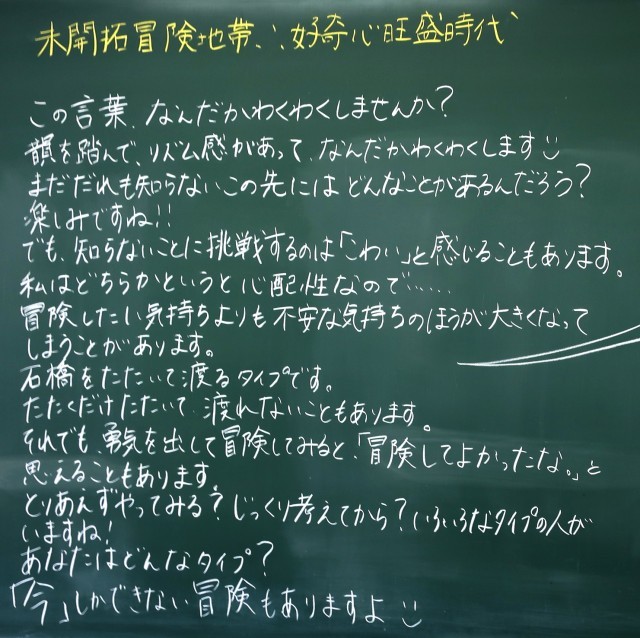 未開拓冒険地帯∴好奇心旺盛時代
この言葉、なんだかわくわくしませんか?
韻を踏んで、リズム感があって、なんだかわくわくします
まだだれも知らないこの先にはどんなことがあるんだろう?
楽しみですね!!
でも、知らないことに挑戦するのは「こわい」と感じることもあります。
私はどちらかというと心配性なので……
冒険したい気持ちよりも不安な気持ちのほうが大きくなって
しまうことがあります。
石橋をたたいて渡るタイプです。
たたくだけたたいて、渡れないこともあります。
それでも、勇気を出して冒険してみると、「冒険してよかったな。」と
思えることもあります。
とりあえずやってみる?じっくり考えてから?いろいろなタイプの人が
いますね!
あなたはどんなタイプ?
「今」しかできない冒険もありますよ